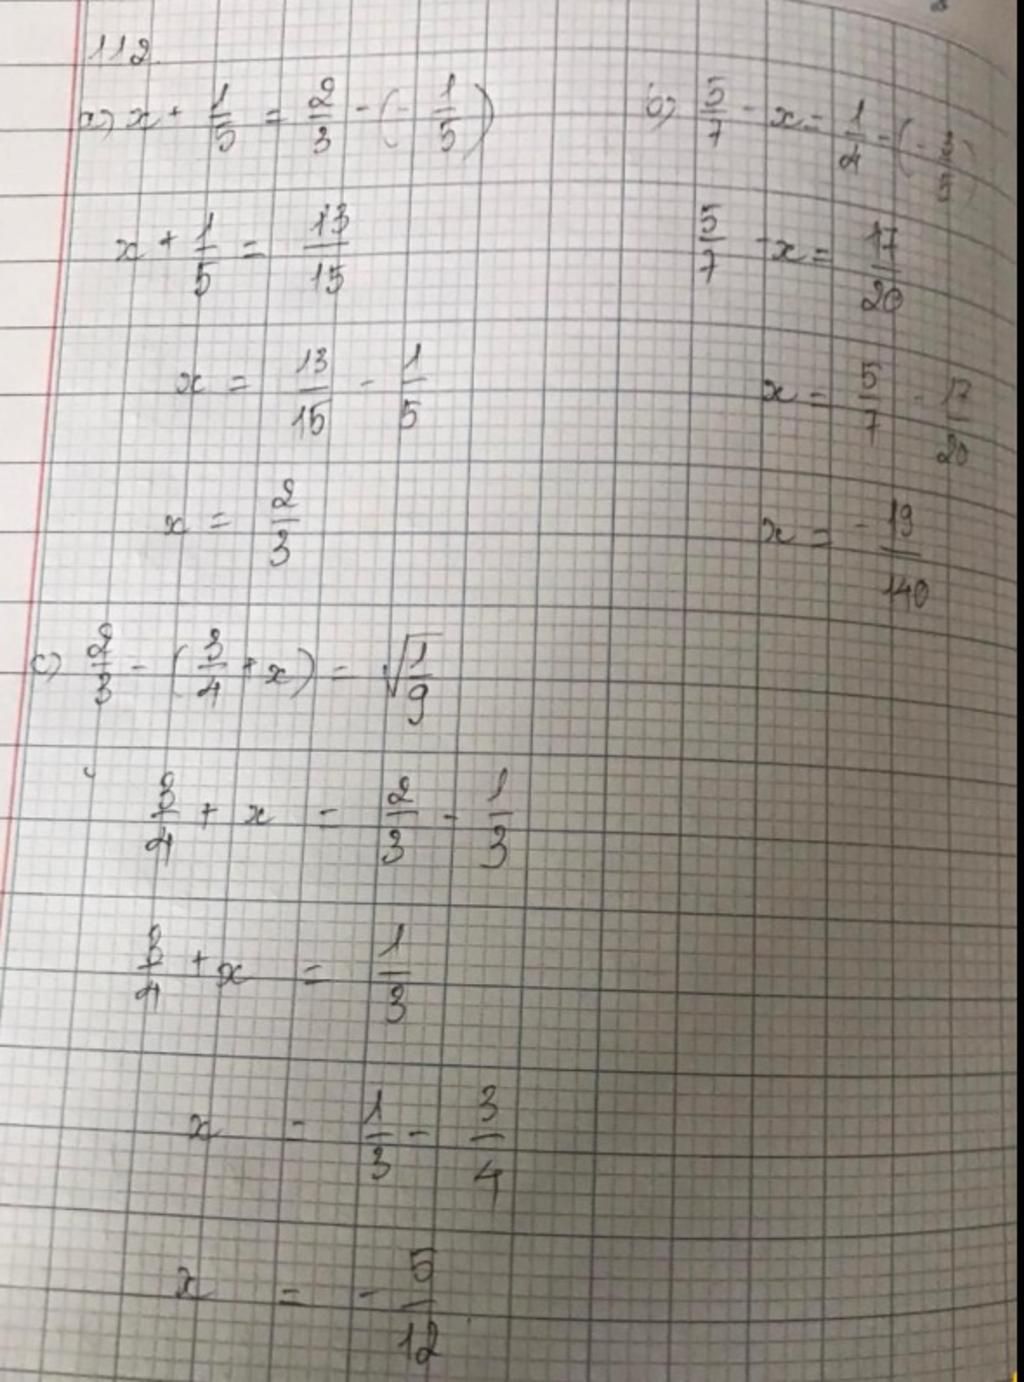 112.
a) x + 1/5 = 2/3 - (- 1/5)
x + 1/5 = 13/15
x = 13/15 - 1/5
x = 2/3
b) 5/7 - x = 1/4 - (- 3/5)
5/7 - x = 17/20
x = 5/7 - 17/20
x = - 19/140
c) 2/3 - (3/4 + x) = √1/9
3/4 + x = 2/3 - 1/3
3/4 + x = 1/3
x = 1/3 - 3/4
x = - 5/12